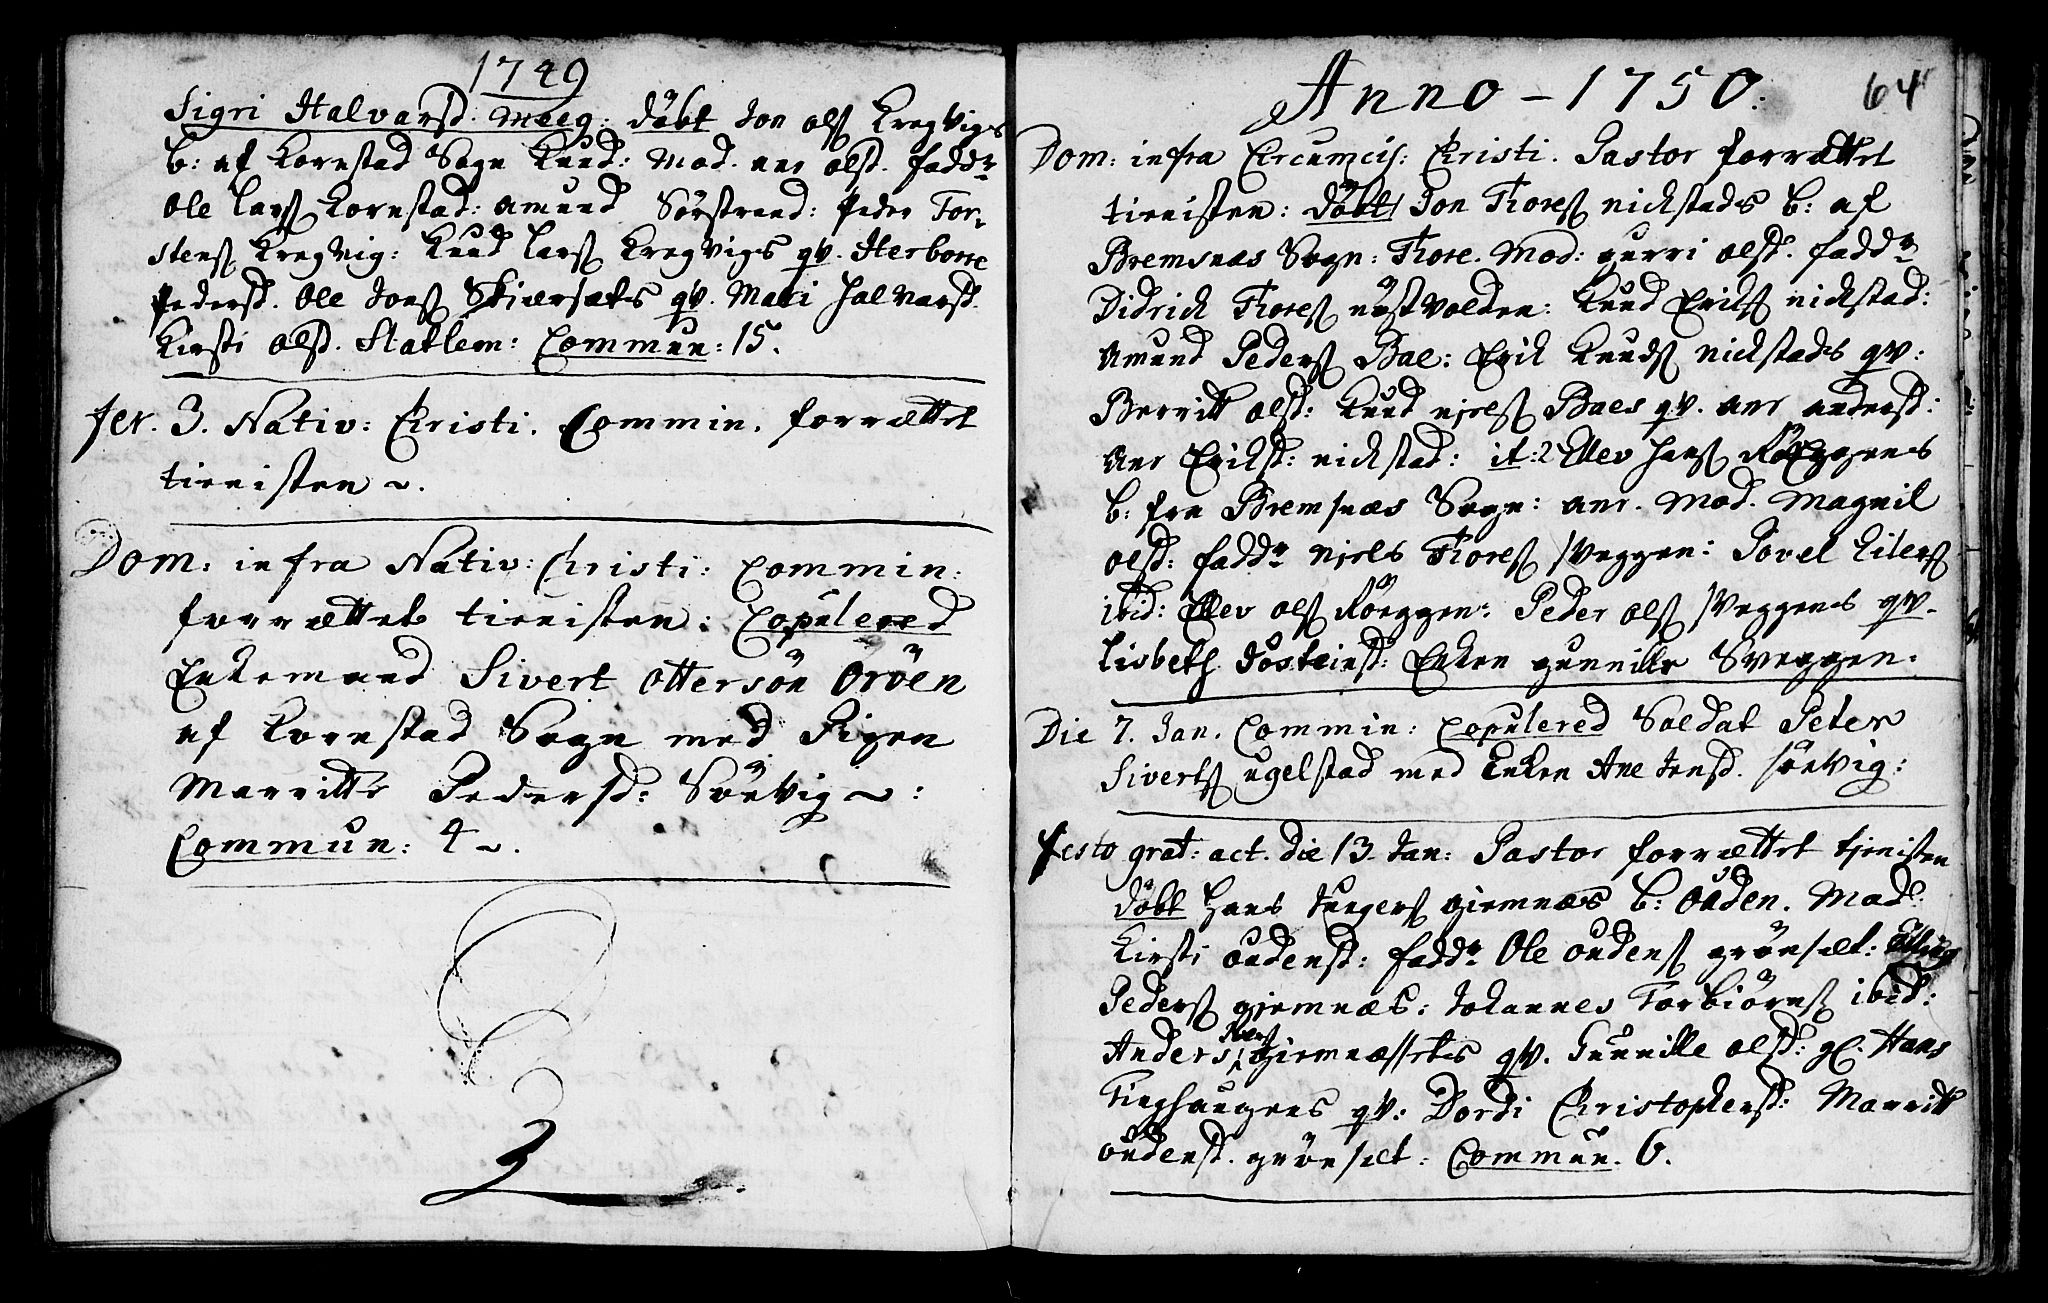 1749
Sigri Halvarsd. Meeg: döbt Jon Ols Kregvigs
b: af Kornstad Sogn Knud: Mod. Ane Olsd. fadd:
Ole Lars Kornstad: Amund Sörstrand: Peder Tor-
stens Kregvig: Knud Lars Kregvigs qv. Herborre
Pedersd. Ole Jons Skiærsæts qv. Mari Halvarsd.
Kirsti Olsd. Staklem: Commun: 15.
Fer. 3. Nativ: Christi. Commin. forrættet
tienisten ~.
Dom: infra Nativ: Christi: Commin:
forrættet tienisten: Copulered
Enkemand Sivert Ottersön Oröen
af Kornstad Sogn med Pigen
Marritte Pedersd: Svevig ~:
Commun: 4 ~.
Anno - 1750: 64
Dom: infra Circumcis: Christi. Pastor forrættet
tienisten: döbt Jon Thores nickstads b: af
Bremsnæs Sogn: Thore. Mod: gurri olsd. fadd:
Didrich Thores nöstvolden: Knud Eriks nickstad:
Amund Peders Bae: Erik Knuds nickstads qv:
Berritt olsd: Knud niels Baes qv. Ane andersd:
Ane Eriksd: nickstad: it: 2 Ellev Hans Röeggens
b: fra Bremsnæs Sogn: Ane. Mod. Magnil
olsd: fadd: niels Thores Sveggen: Povel Eilers
ibid: Ellev ols Röeggen: Peder ols Sveggens qv.
Lisbeth Josteinsd: Enken gunnille Sveggen.
Die 7. Jan. Commin: Copulered Soldat Peter
Siverts ugelstad med Enken Ane Jensd. Svevig:
Festo grat: act. die 13. Jan: Pastor forrættet tienisten
döbt Hans Jungers giemnæs b: Ouden. Mod:
Kirsti oudensd: fadd: Ole oudens grönsæt:
Peders gjemnæs: Johannes Torbiörns ibid:
Anders Ivers giemnæssets qv. Gunnille olsd: gl. Hans
Tinghaugens qv: Dordi Christophersd: Marritt
oudensd. grönsæt: Commun. 6.